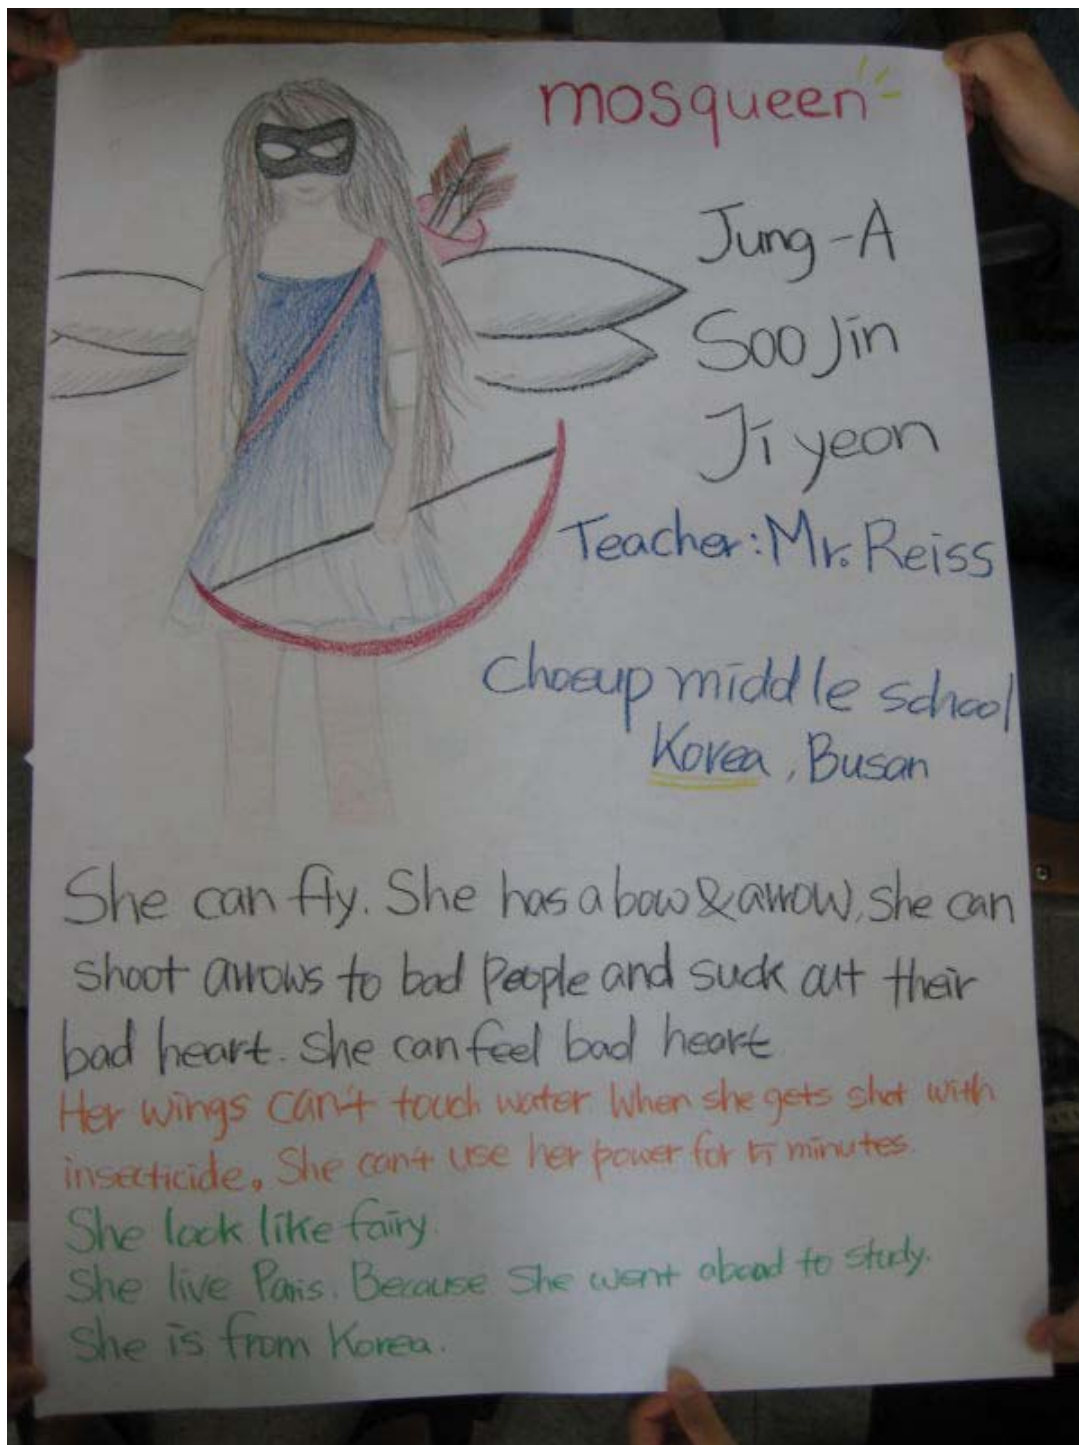 mosqueen
Jung-A
Soo Jin
Ji yeon
Teacher: Mr. Reiss
Choeup middle school
Korea, Busan
She can fly. She has a bow & arrow. She can
shoot arrows to bad people and suck out their
bad heart. She can feel bad heart
Her wings can't touch water. When she gets shot with
insecticide, She can't use her power for 15 minutes.
She look like fairy.
She live Paris. Because She went aboad to study.
She is from Korea.